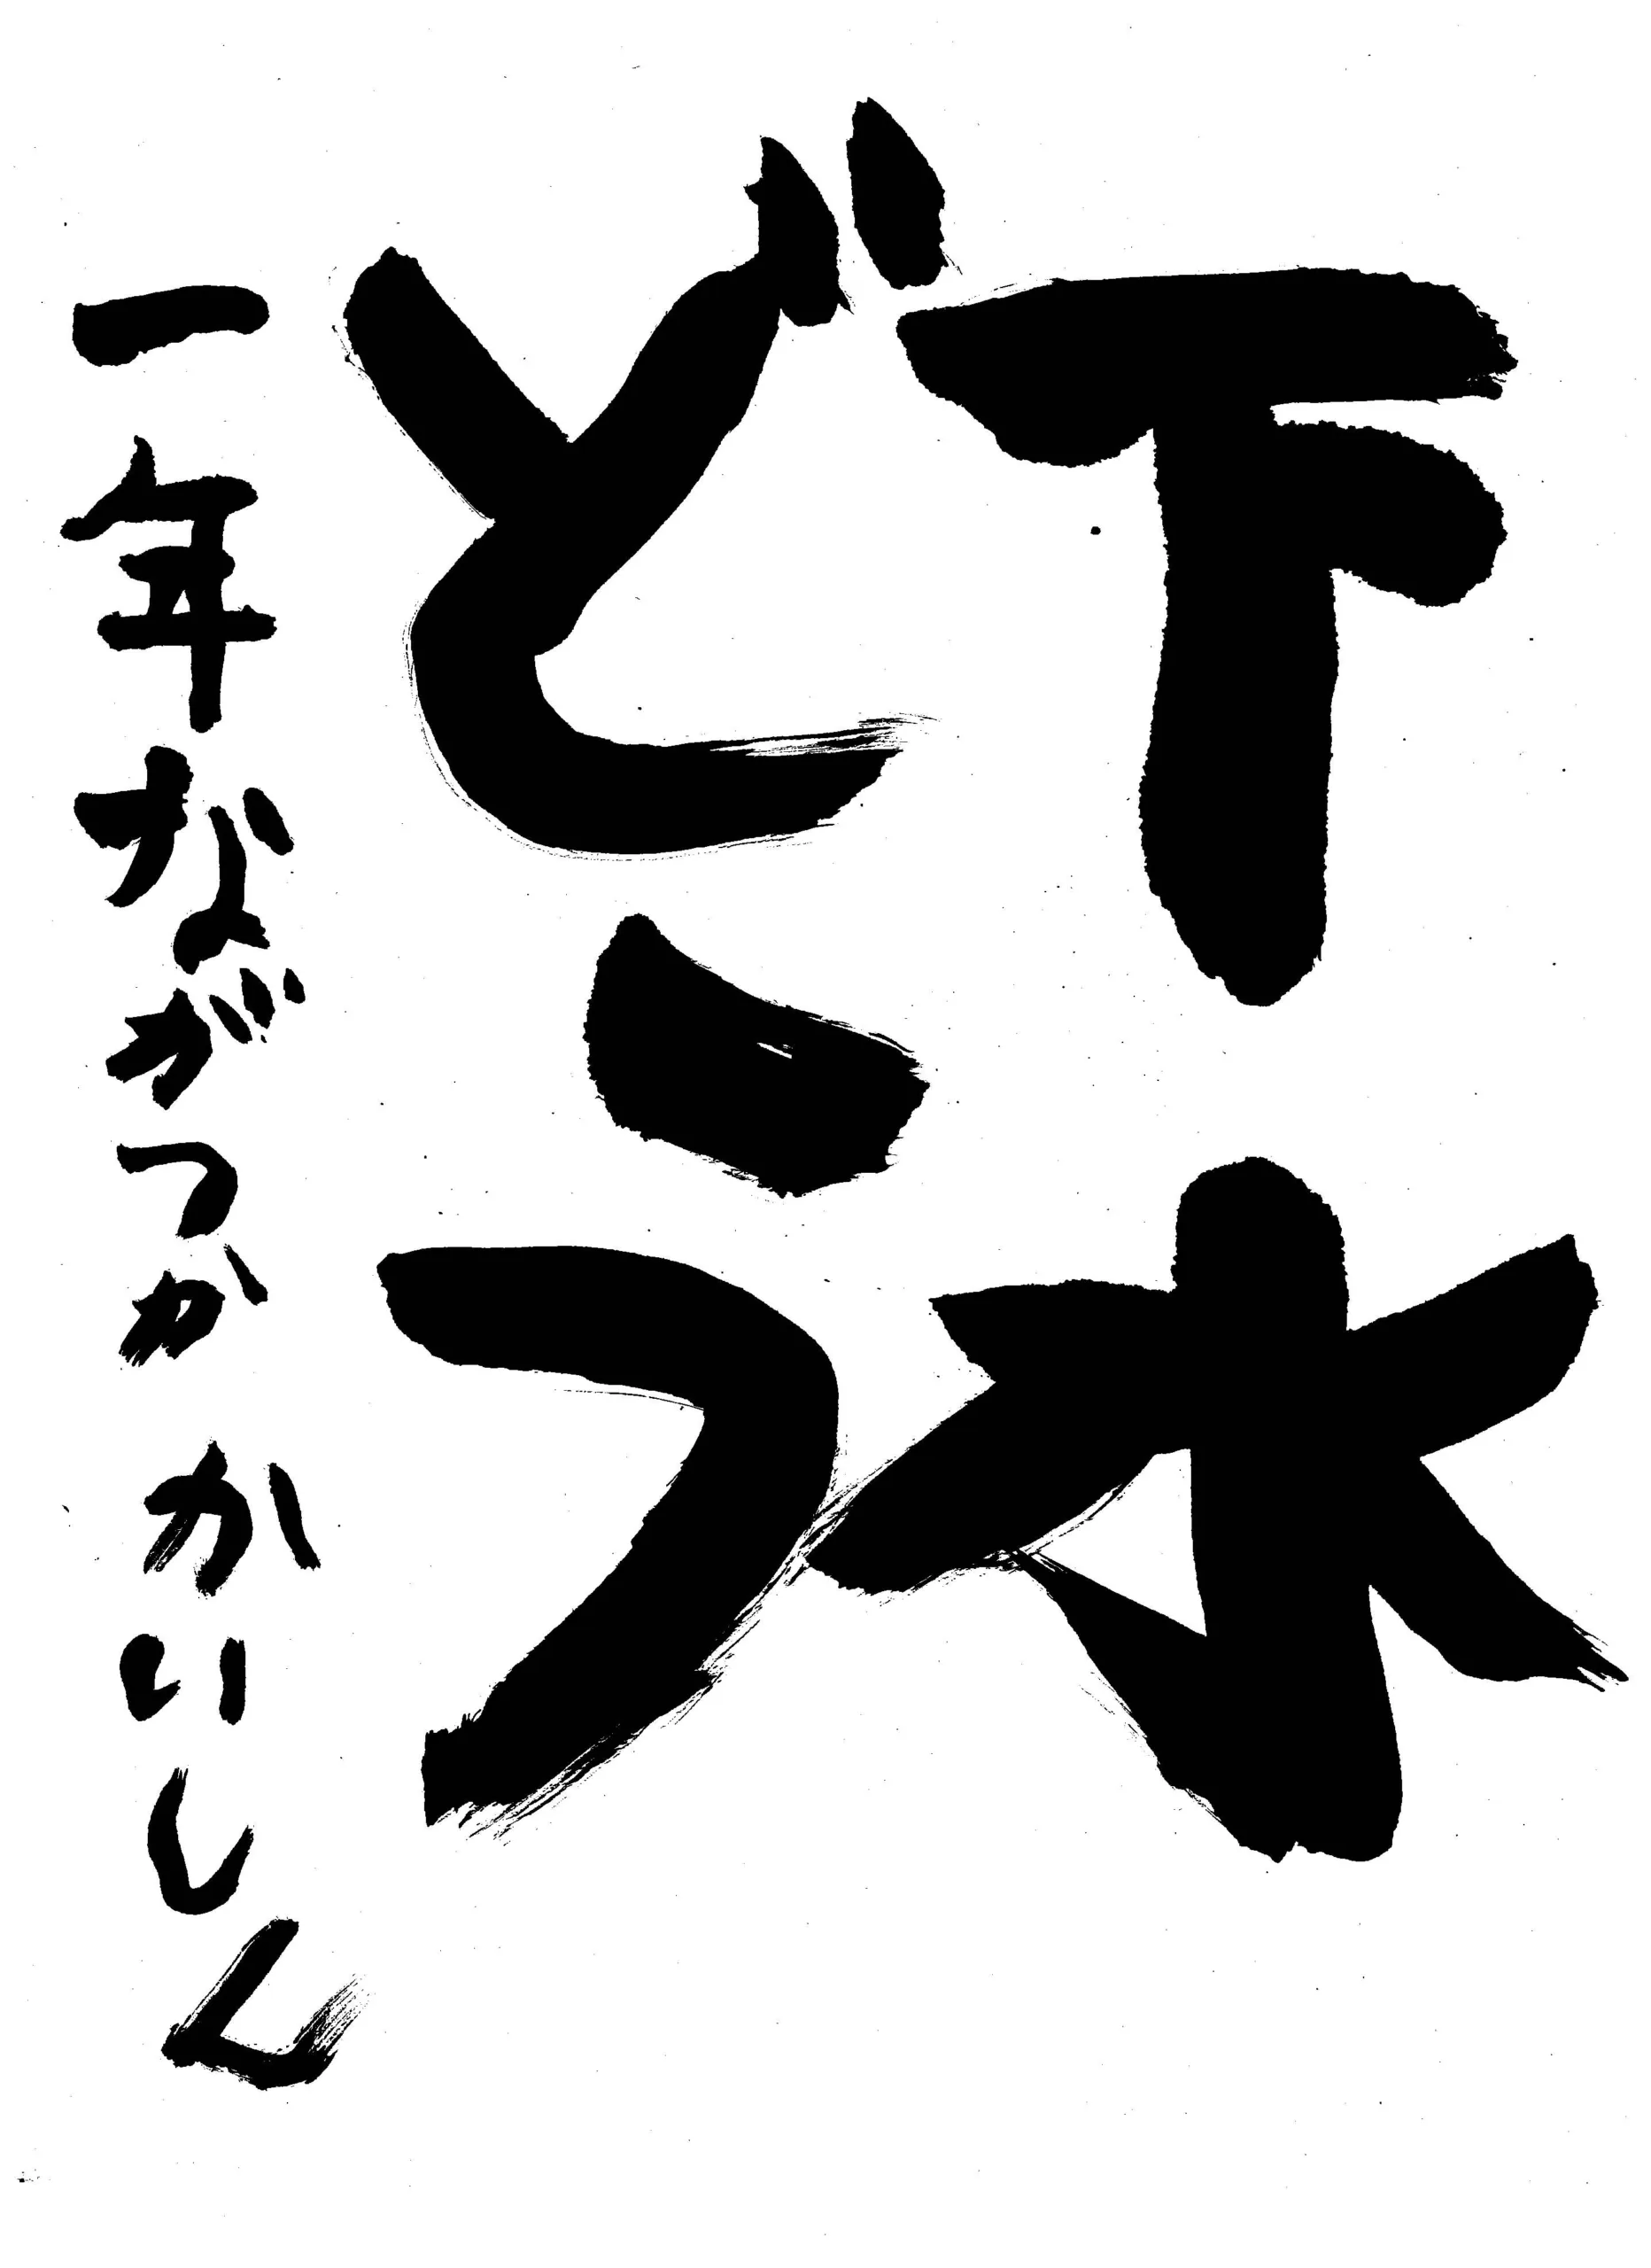 下水
どう
一年ながつか かいしん